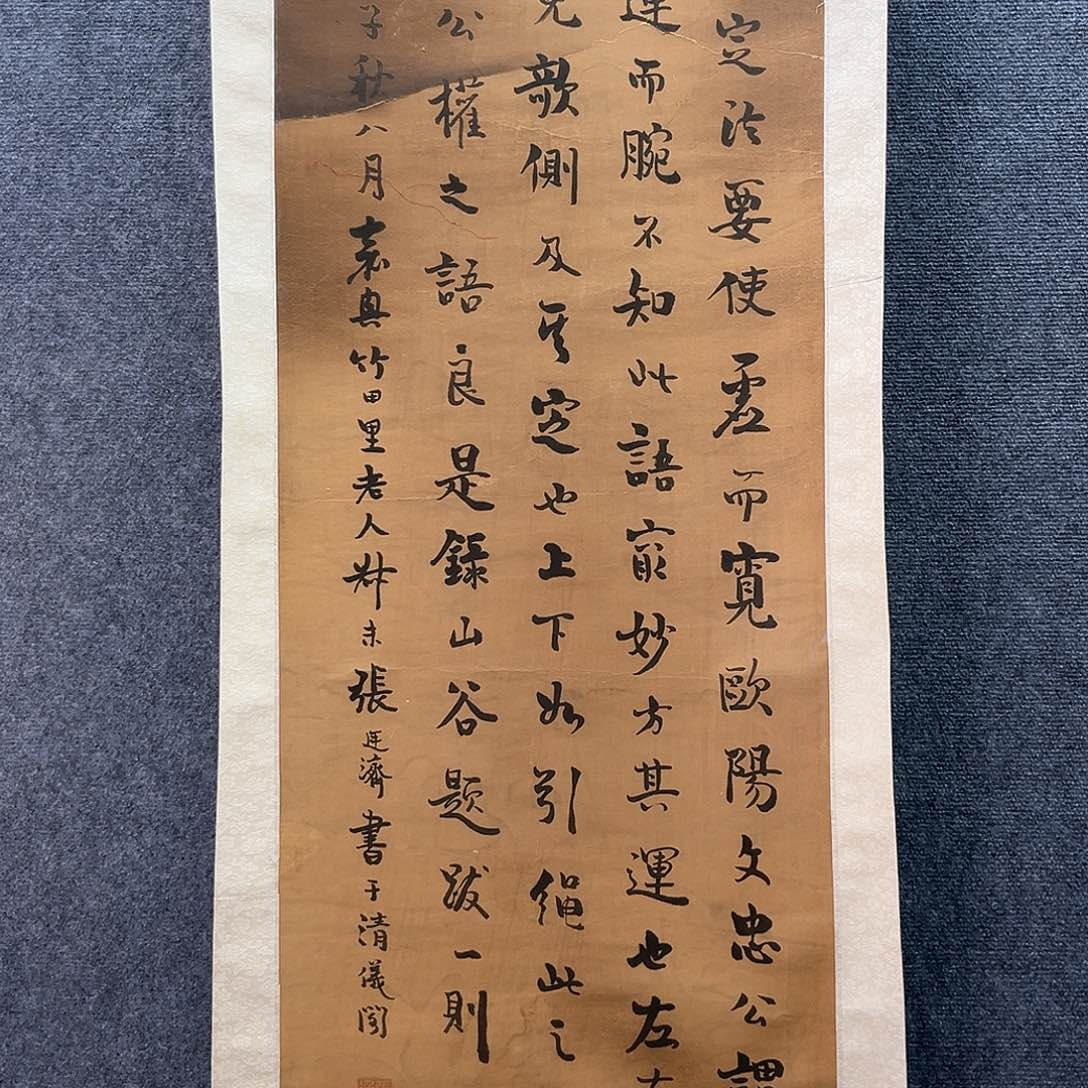 定法要使虛而寬歐陽文忠公謂
運而腕不知此語冣妙方其運也左右
免欹側及其定也上下如引繩此之
公權之語良是錄山谷題跋一則
子秋八月嘉興竹田里老人尗未張廷濟書于清儀閣